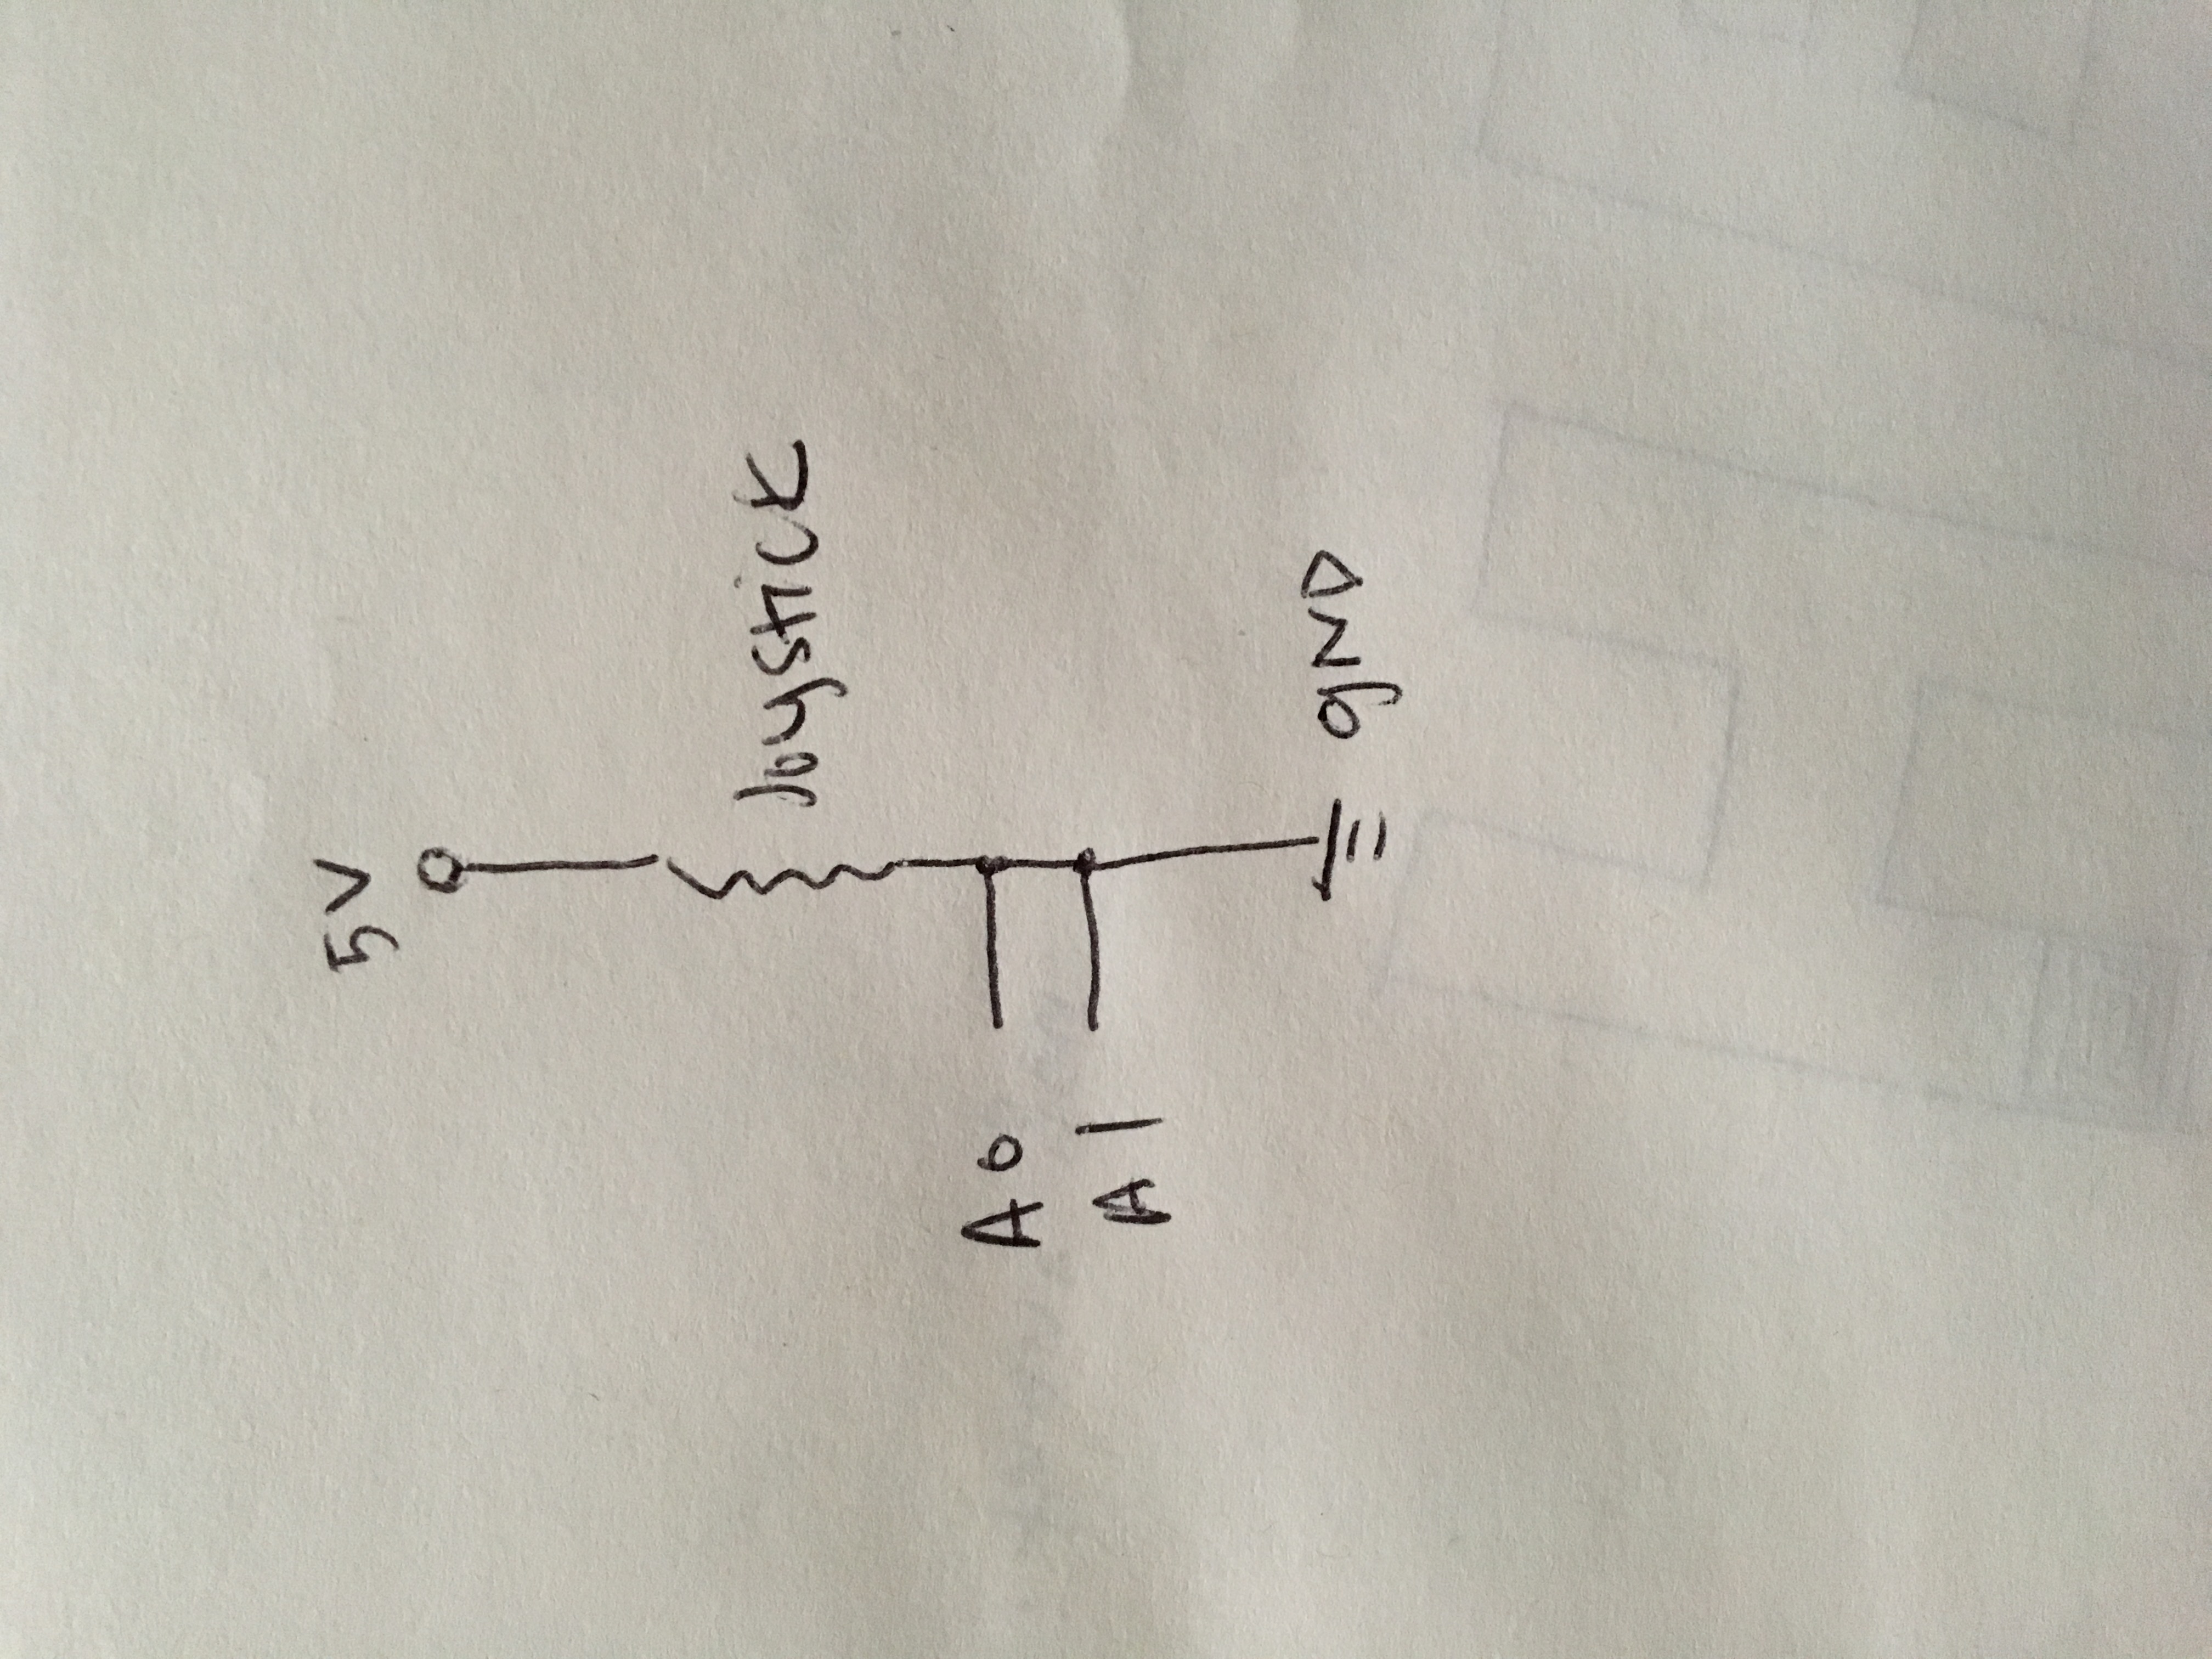 5V
Joystick
A0
A1
gND